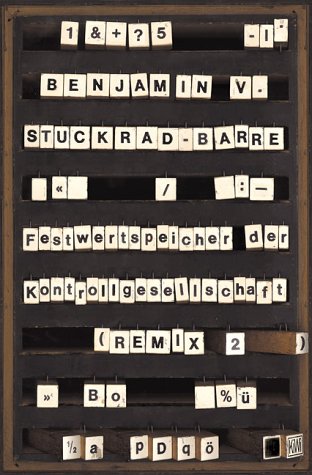 1 &+?5 -I-
BENJAMIN V.
STUCKRAD-BARRE
« / :—
Festwertspeicher der
Kontrollgesellschaft
(REMIX 2 )
» Bo %ü
½ a pDqö KiWi